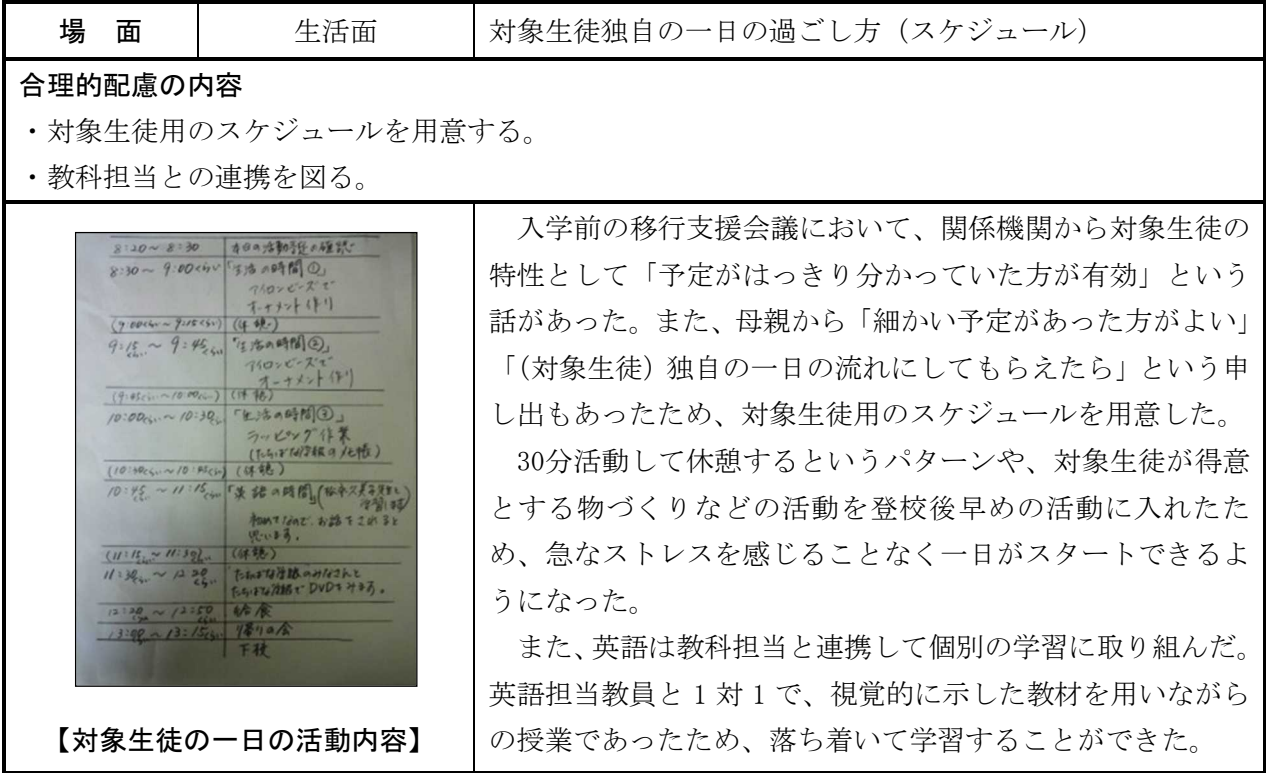 場　面　生活面　対象生徒独自の一日の過ごし方（スケジュール）
合理的配慮の内容
・対象生徒用のスケジュールを用意する。
・教科担当との連携を図る。
8:20～8:30　本日の活動予定の確認
8:30～9:00くらい　「生活の時間①」
アイロンビーズで
オーナメント作り
(9:00くらい～9:15くらい)　(休憩)
9:15くらい～9:45くらい　「生活の時間②」
アイロンビーズで
オーナメント作り
(9:45くらい～10:00くらい)　(休憩)
10:00くらい～10:30くらい　「生活の時間③」
ラッピング作業
(たちばな学級のメモ帳)
(10:30くらい～10:45くらい)　(休憩)
10:45くらい～11:15くらい　「英語の時間」
初めてなので、お話をされると
思います。
(11:15くらい～11:30くらい)　(休憩)
11:30くらい～12:20くらい　たちばな学級のみなさんと
たちばな学級でDVDをみます。
12:20くらい～12:50くらい　給食
13:00～13:15くらい　帰りの会
下校
【対象生徒の一日の活動内容】
入学前の移行支援会議において、関係機関から対象生徒の
特性として「予定がはっきり分かっていた方が有効」という
話があった。また、母親から「細かい予定があった方がよい」
「(対象生徒) 独自の一日の流れにしてもらえたら」という申
し出もあったため、対象生徒用のスケジュールを用意した。
30分活動して休憩するというパターンや、対象生徒が得意
とする物づくりなどの活動を登校後早めの活動に入れたた
め、急なストレスを感じることなく一日がスタートできるよ
うになった。
また、英語は教科担当と連携して個別の学習に取り組んだ。
英語担当教員と１対１で、視覚的に示した教材を用いながら
の授業であったため、落ち着いて学習することができた。